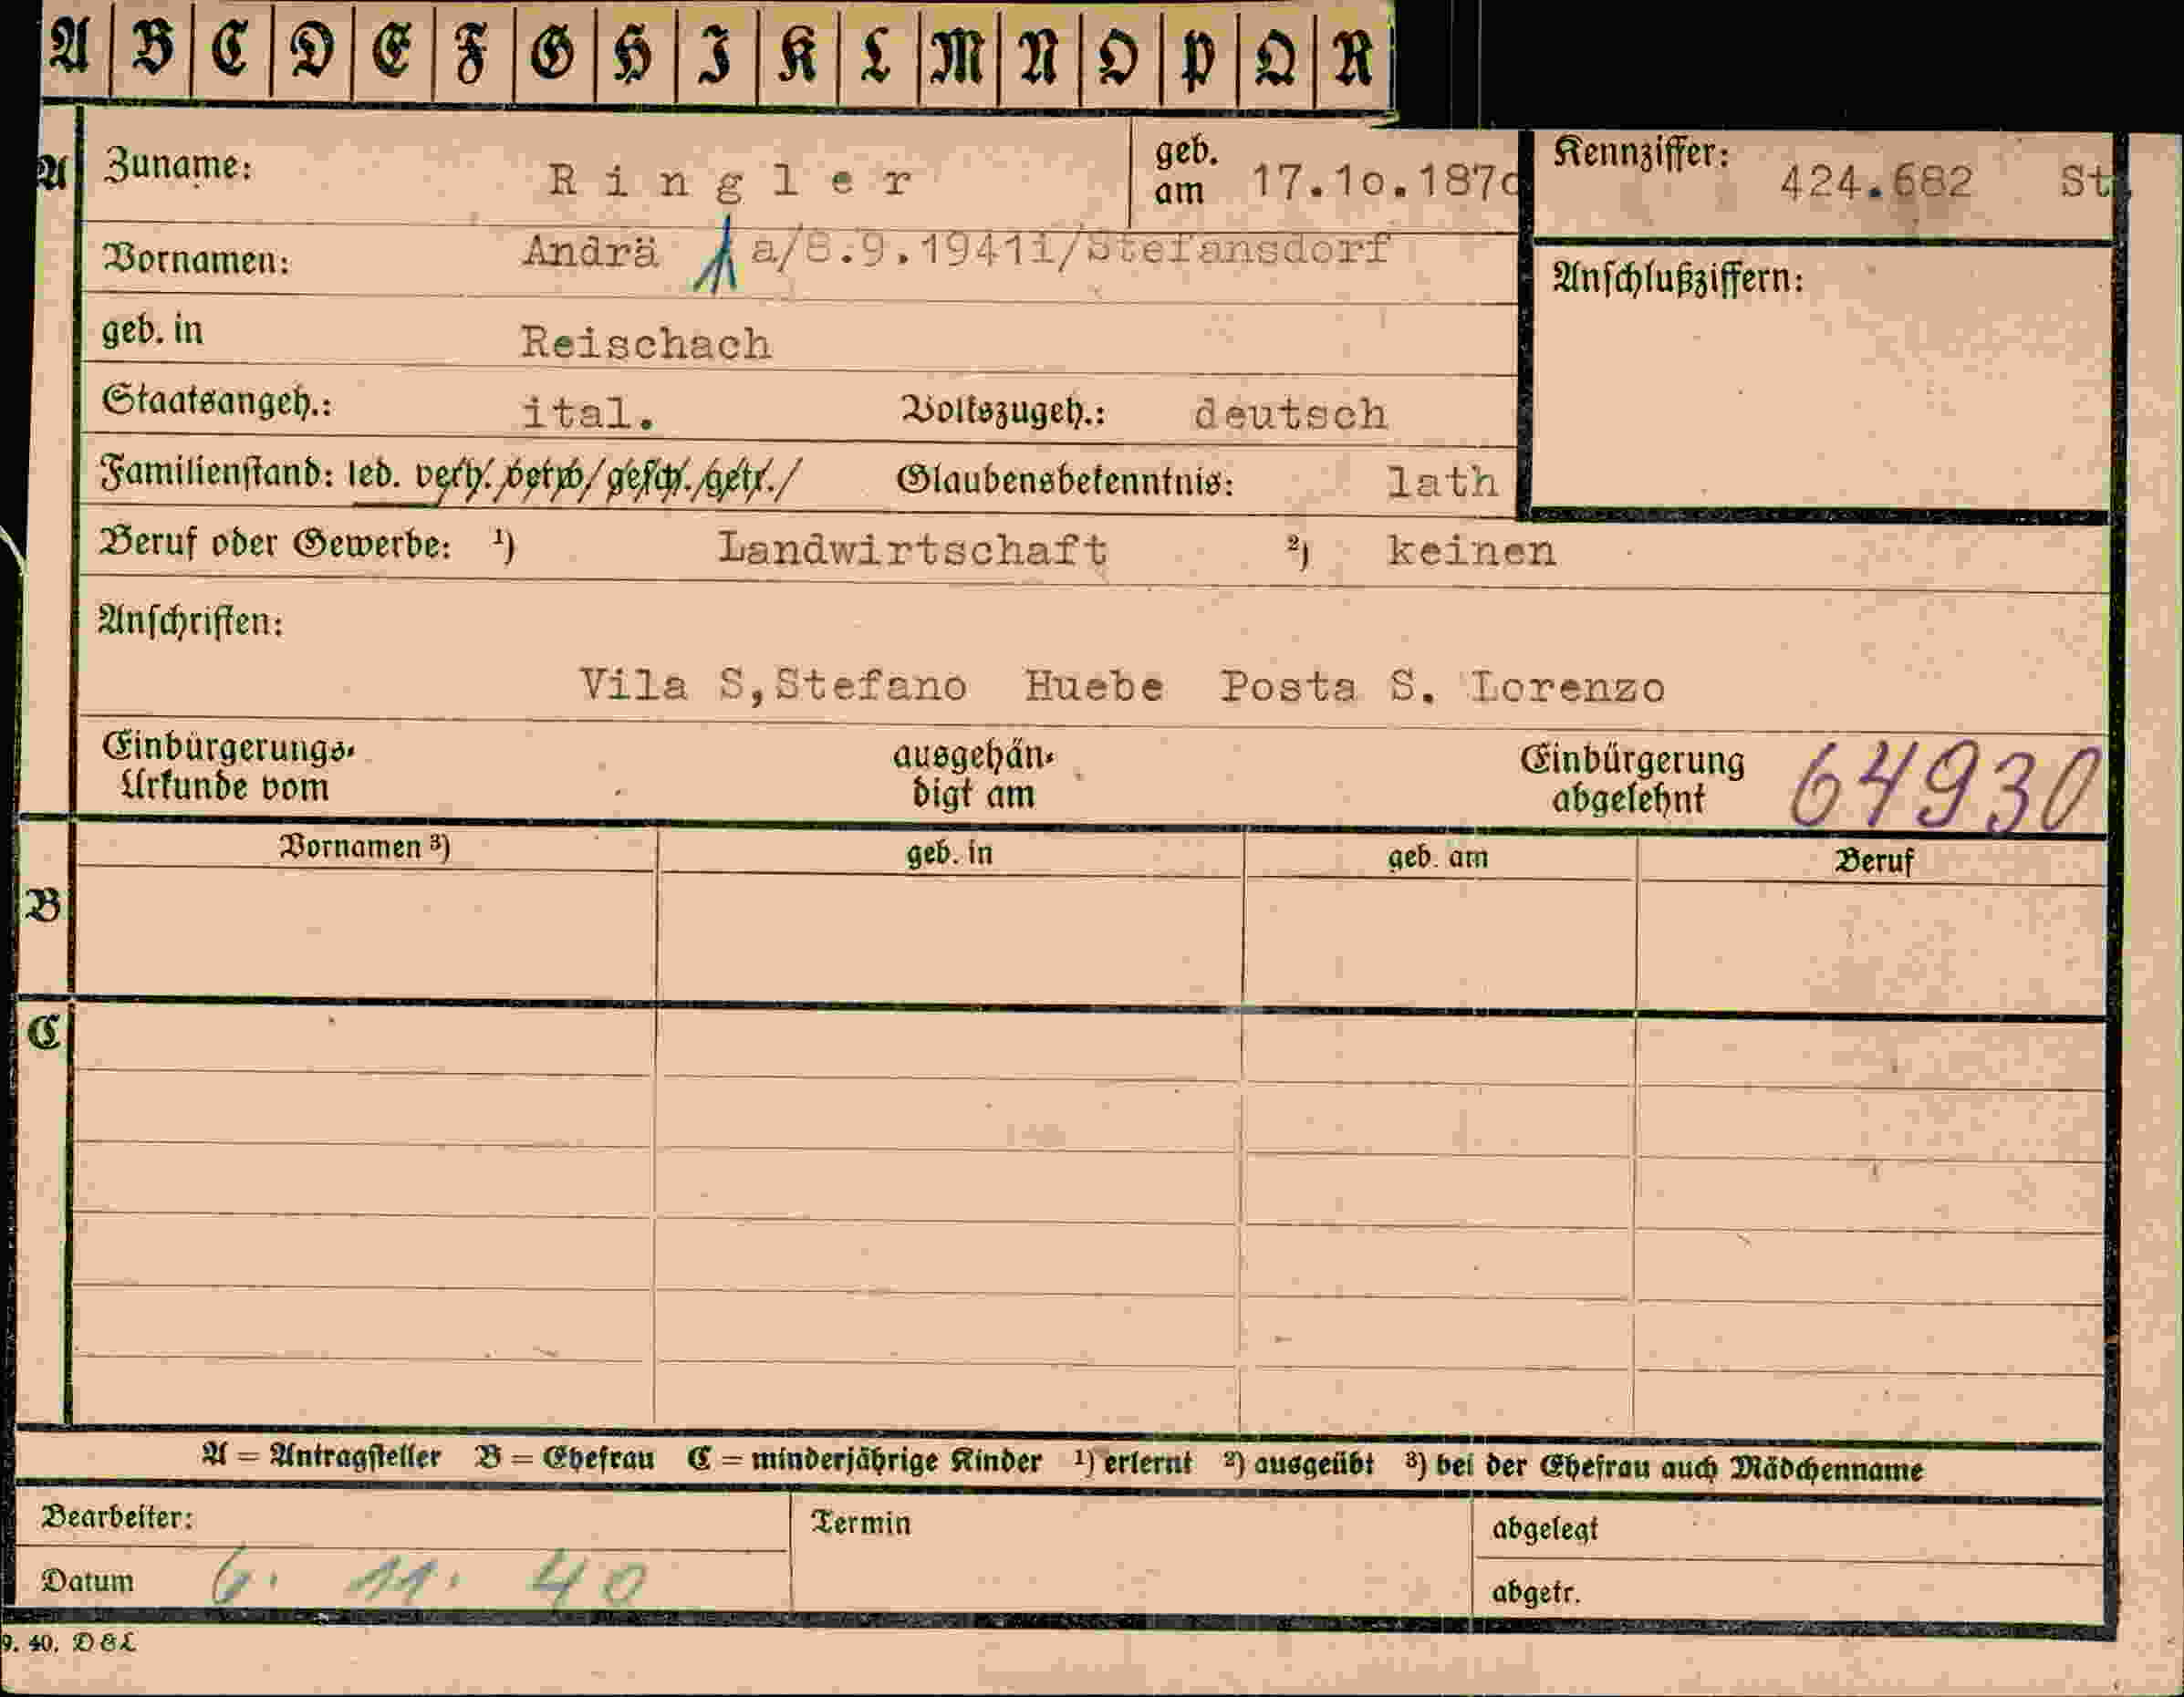 A B C D E F G H I K L M N O P Q R
A Zuname: Ringler geb. am 17.10.1870 Kennziffer: 424.682 St.
Vornamen: Andrä a/8.9.1941i/Stefansdorf Anschlußziffern:
geb. in Reischach
Staatsangeh.: ital. Volkszugeh.: deutsch
Familienstand: led. verh. verw. gesch. getr. Glaubensbekenntnis: lath
Beruf oder Gewerbe: ¹) Landwirtschaft ²) keinen
Anschriften:
Vila S,Stefano Huebe Posta S. Lorenzo
Einbürgerungs-Urkunde vom ausgehändigt am Einbürgerung abgelehnt 64930
Vornamen ³) geb. in geb. am Beruf
B
C
A = Antragsteller B = Ehefrau C = minderjährige Kinder ¹) erlernt ²) ausgeübt ³) bei der Ehefrau auch Mädchenname
Bearbeiter: Termin abgelegt
Datum 6. 11. 40 abgetr.
9. 40. D&L